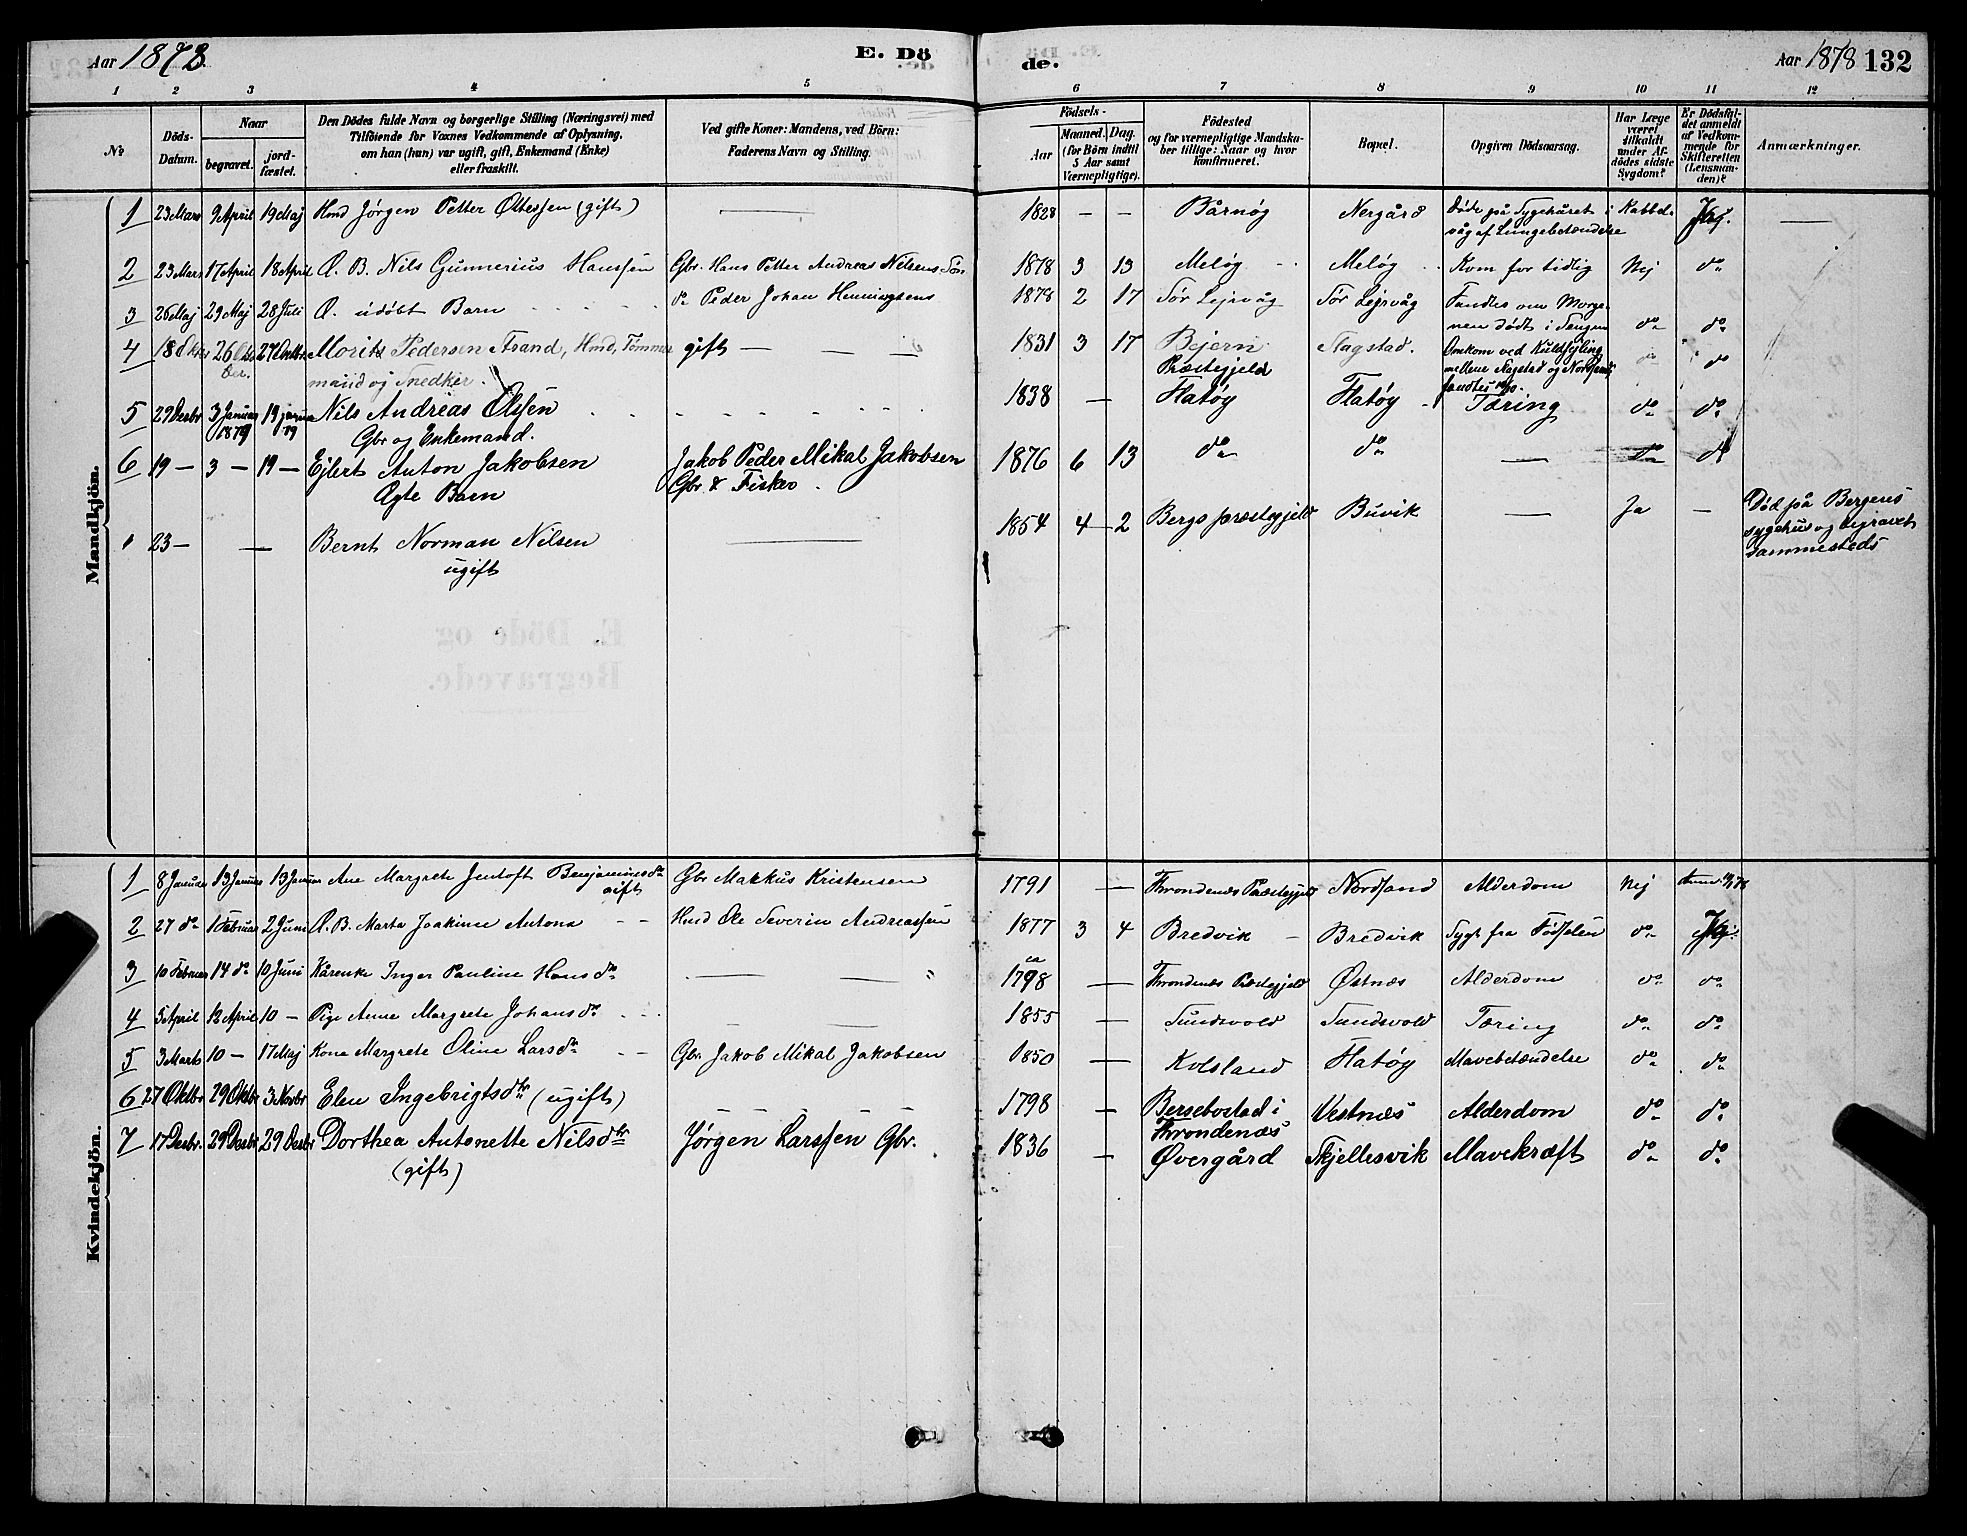 Aar 1878.
E. Dö
de.
Aar 1878 132
1 2 3 4 5 6 7 8 9 10 11 12
No
Döds-Datum.
Naar
begravet.
jord-fæstet.
Den Dödes fulde Navn og borgerlige Stilling (Næringsvei) med
Tilföiende for Voxnes Vedkommende af Oplysning,
om han (hun) var ugift, gift, Enkemand (Enke)
eller fraskilt.
Ved gifte Koner: Mandens, ved Börn:
Faderens Navn og Stilling.
Födsels-
Aar
Maaned. Dag.
(for Börn indtil
5 Aar samt
Værnepligtige).
Födested
og for værnepligtige Mandska-
ber tillige: Naar og hvor
Konfirmeret.
Bopæl.
Opgiven Dödsaarsag.
Har Læge
været
tilkaldt
under Af-
dödes sidste
Sygdom?
Er Dödsfal-
det anmeldt
af Vedkom-
mende for
Skifteretten
(Lensman-
den)?
Anmærkninger.
Mandkjön.
1 23 Mars 9 April 19 Maj Hmd Jørgen Petter Ottessen (gift) — 1828 — — Barnøg Nergård Døde på Sygehuset i Kabbel- —
våg af Lungebetændelse
2 23 Mars 17 April 18 April Æ. B. Nils Gunnerius Hanssen Gbr. Hans Petter Andreas Nilsens Søn 1878 3 13 Meløg Meløg Kom for tidlig Nej do
3 26 Maj 29 Maj 28 Juli Æ. udøbt Barn do Peder Johan Henningsens 1878 2 17 Sør Lejrvåg Sør Lejrvåg Fandtes om Morge-
nen dødt i Sengen do do
4 18 Oktr 26 Okto 27 Oktbr Moritz Pedersen Strand, Hmd, Tømmer gift — — — 1831 3 17 Bejern Slagstad. Omkom ved Kuldsejling
ber. mand og Snedker. Præstegjeld do
fandtes
5 29 Desbr 3 Januar 19 januar Nils Andreas Olssen 1838 — Flatøy Flatøy Tæring do do
1879 79 Gbr og Enkemand.
6 19 — 3 — 19 — Ejlert Anton Jakobsen Jakob Peder Mikal Jakobsen 1876 6 13 do do — do do
Ægte Barn Gbr & Fisker.
23 — — Bernt Norman Nilsen — 1854 4 — 2 Bergs præstegjeld Buvik — Ja — Død på Bergens
ugift sygehus og begravet
sammesteds
E. Döde og
Begravede.
Kvindekjön.
1 8 Januar 13 Januar 13 Januar Ane Margrete Jentoft Benjaminsdr Gbr Markus Kristensen 1791 — Throndenæs Præstegjeld Nordsand Alderdom Nej
gift
2 27 do 1 Februar 2 Juni Æ. B. Marta Joakime Antona Hmd Ole Severin Andreassen 1877 3 4 Bredvik — Bredvik Sygt fra Fødselen do
3 10 Februar 14 do 10 Juni Kårenke Inger Pauline Hansdr — — ca
1798 — Throndenæs Præstegjeld Østnæs Alderdom do do
4 5 April 12 April 10 — Pige Anne Margrete Johansdr — — 1855 — Sundsvold Sundsvold Tæring do do
5 3 Marts 10 — 17 Maj Kone Margrete Oline Larsdr Gbr Jakob Mikal Jakobsen 1850 — Kolsland Flatøy Mavebetændelse do do
6 27 Oktbr 29 Oktbr 3 Novbr Elen Ingebrigtsdtr (ugift) — — — — — 1798 — Bersebostad i Vestnæs Alderdom do do
Throndenæs
7 17 Desbr. 29 Desbr 29 Desbr Dorthea Antonette Nilsdtr Jørgen Larssen Gbr. 1836 — Øvergård Skjellesvik Mavekræft do do
(gift)